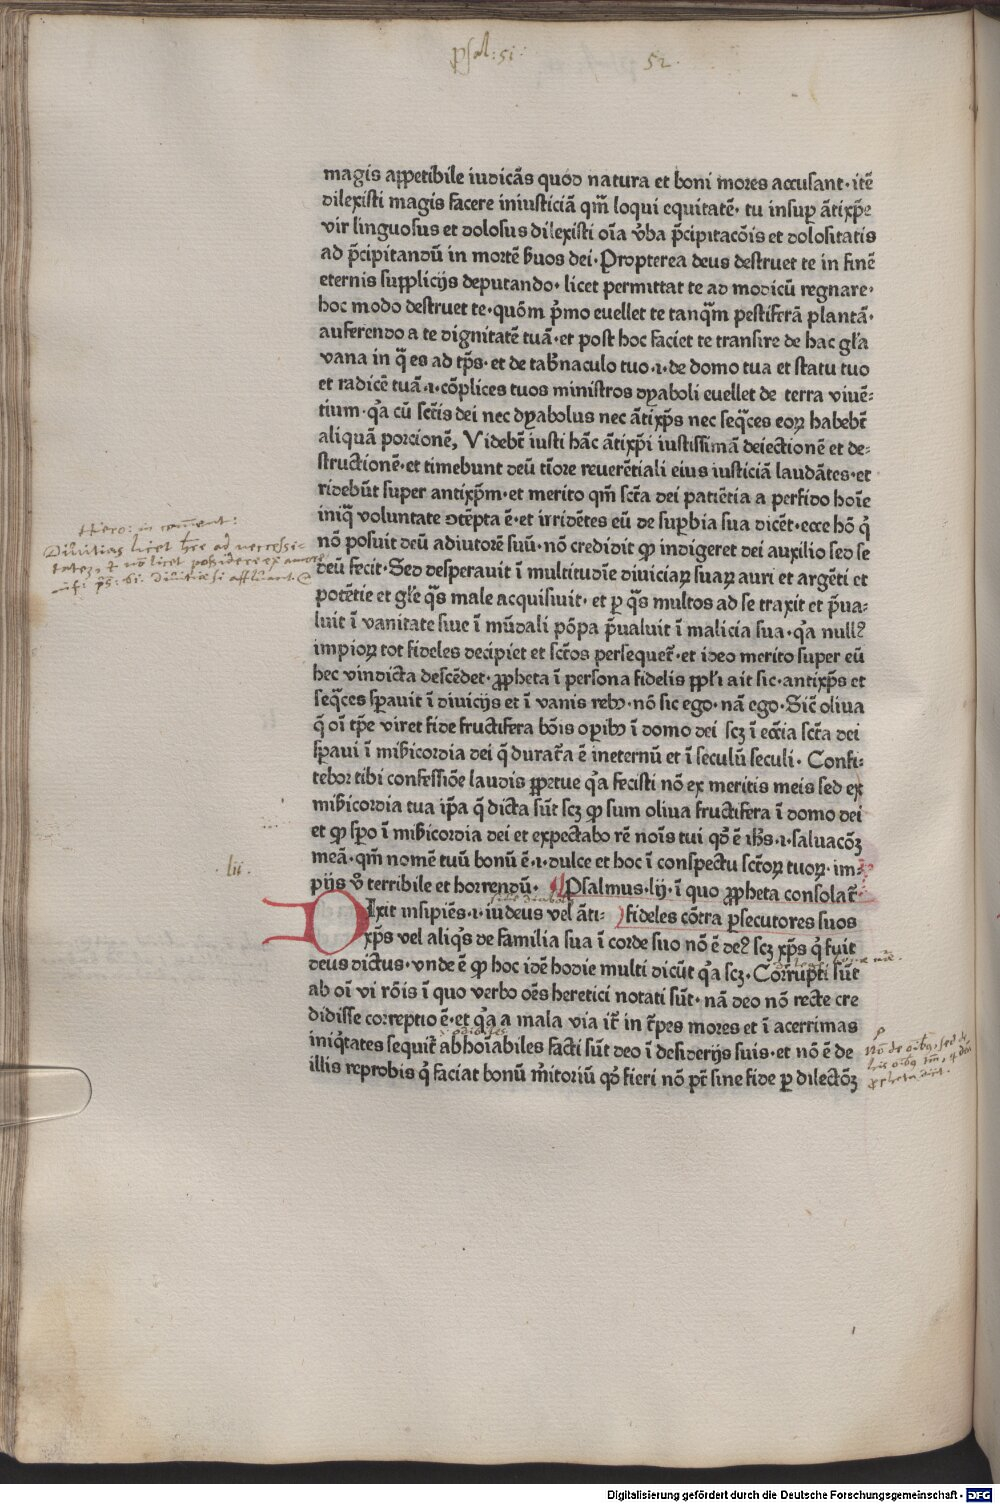 psal: 51: 52.
magis appetibile iudicãs quod natura et boni mores accusant· itẽ
dilexisti magis facere iniusticiã qm̃ loqui equitatẽ· tu insup ãtixp̃e
vir linguosus et dolosus dilexisti oĩa v̾ba p̃cipitacõis et dolositatis
ad p̃cipitandũ in mortẽ s̾uos dei· Propterea deus destruet te in finẽ
eternis supplicijs deputando· licet permittat te ad modicũ regnare·
hoc modo destruet te· quõm p̾mo euellet te tanq̃m pestiferã plantã·
auferendo a te dignitatẽ tuã· et post hoc faciet te transire de hac gl̾a
vana in q̃ es ad tp̃s· et de tab̾naculo tuo ·i· de domo tua et statu tuo
et radicẽ tuã ·i· cõplices tuos ministros dyaboli euellet de terra viuẽ⸗
tium· q̾a cũ sct̃is dei nec dyabolus nec ãtixp̃s nec seq̃ces eoꝝ habebt̃
aliquã porcionẽ, Videbt̃ iusti hãc ãtixp̃i iustissimã deiectionẽ et de⸗
structionẽ· et timebunt deũ tĩore reuerẽtiali eius iusticiã laudãtes· et
ridebũt super antixp̃m· et merito qm̃ sct̃a dei patiẽtia a perfido hoĩe
iniq̃ voluntate ɔtẽpta ẽ· et irridẽtes eũ de sup̾bia sua dicẽt· ecce hõ q̾
nõ posuit deũ adiutorẽ suũ· nõ credidit ꝙ indigeret dei auxilio sed se
deũ fecit· Sed desperauit ĩ multitudĩe diuiciaꝝ suaꝝ auri et argẽti et
potẽtie et gl̾e q̃s male acquisiuit· et ꝑ q̃s multos ad se traxit et p̃ua⸗
luit ĩ vanitate siue ĩ mũdali põpa p̃ualuit ĩ malicia sua· q̾a null⁹
impioꝝ tot fideles decipiet et sct̃os persequet̃· et ideo merito super eũ
hec vindicta descẽdet· ꝓpheta ĩ persona fidelis ppl̾i ait sic· antixp̃s et
seq̃ces spauit ĩ diuicijs et ĩ vanis rebꝰ· nõ sic ego· nã ego· Sic̃ oliua
q̃ oĩ tp̃e viret fide fructifera bõis opibꝰ ĩ domo dei scꝫ ĩ ecc̃ia sct̃a dei
spaui ĩ mis̾icordia dei q̃ durat̾a ẽ ineternũ et ĩ seculũ seculi· Confi⸗
tebor tibi confessiõe laudis ꝑpetue q̾a fecisti nõ ex meritis meis sed ex
mis̾icordia tua ip̃a q̃ dicta sũt scꝫ ꝙ sum oliua fructifera ĩ domo dei
et ꝙ spo ĩ mis̾icordia dei et expectabo rẽ noĩs tui qd̾ ẽ ih̃s ·i· saluacõꝫ
meã· qm̃ nomẽ tuũ bonũ ẽ ·i· dulce et hoc ĩ conspectu sct̃oꝝ tuoꝝ· im⸗
·lii·
pijs v̾o terribile et horrendũ· ¶Psalmus·lij· ĩ quo ꝓpheta consolat̃·
Dixit insipiẽs ·i· iudeus vel ãti⸗ fideles cõtra ꝑsecutores suos
xp̃s vel aliq̾s de familia sua ĩ corde suo nõ ẽ de⁹ scꝫ xp̃s q̾ fuit
deus dictus· vnde ẽ ꝙ hoc idẽ hodie multi dicũt q̾a scꝫ· Corrupti sũt
ab oĩ vi rõis ĩ quo verbo oẽs heretici notati sũt· nã deo nõ recte cre
didisse correptio ẽ· et q̾a a mala via it̃ in t̃pes mores et ĩ acerrimas
iniq̾tates sequit̃ abhoĩabiles facti sũt deo ĩ desiderijs suis· et nõ ẽ de
illis reprobis q̾ faciat bonũ m̾itoriũ qd̾ fieri nõ pt̃ sine fide ꝑ dilectõꝫ
Hiero: in com̃ent:
Diuitias licet h̃re ad necessi⸗
Digitalisierung gefördert durch die Deutsche Forschungsgemeinschaft · DFG